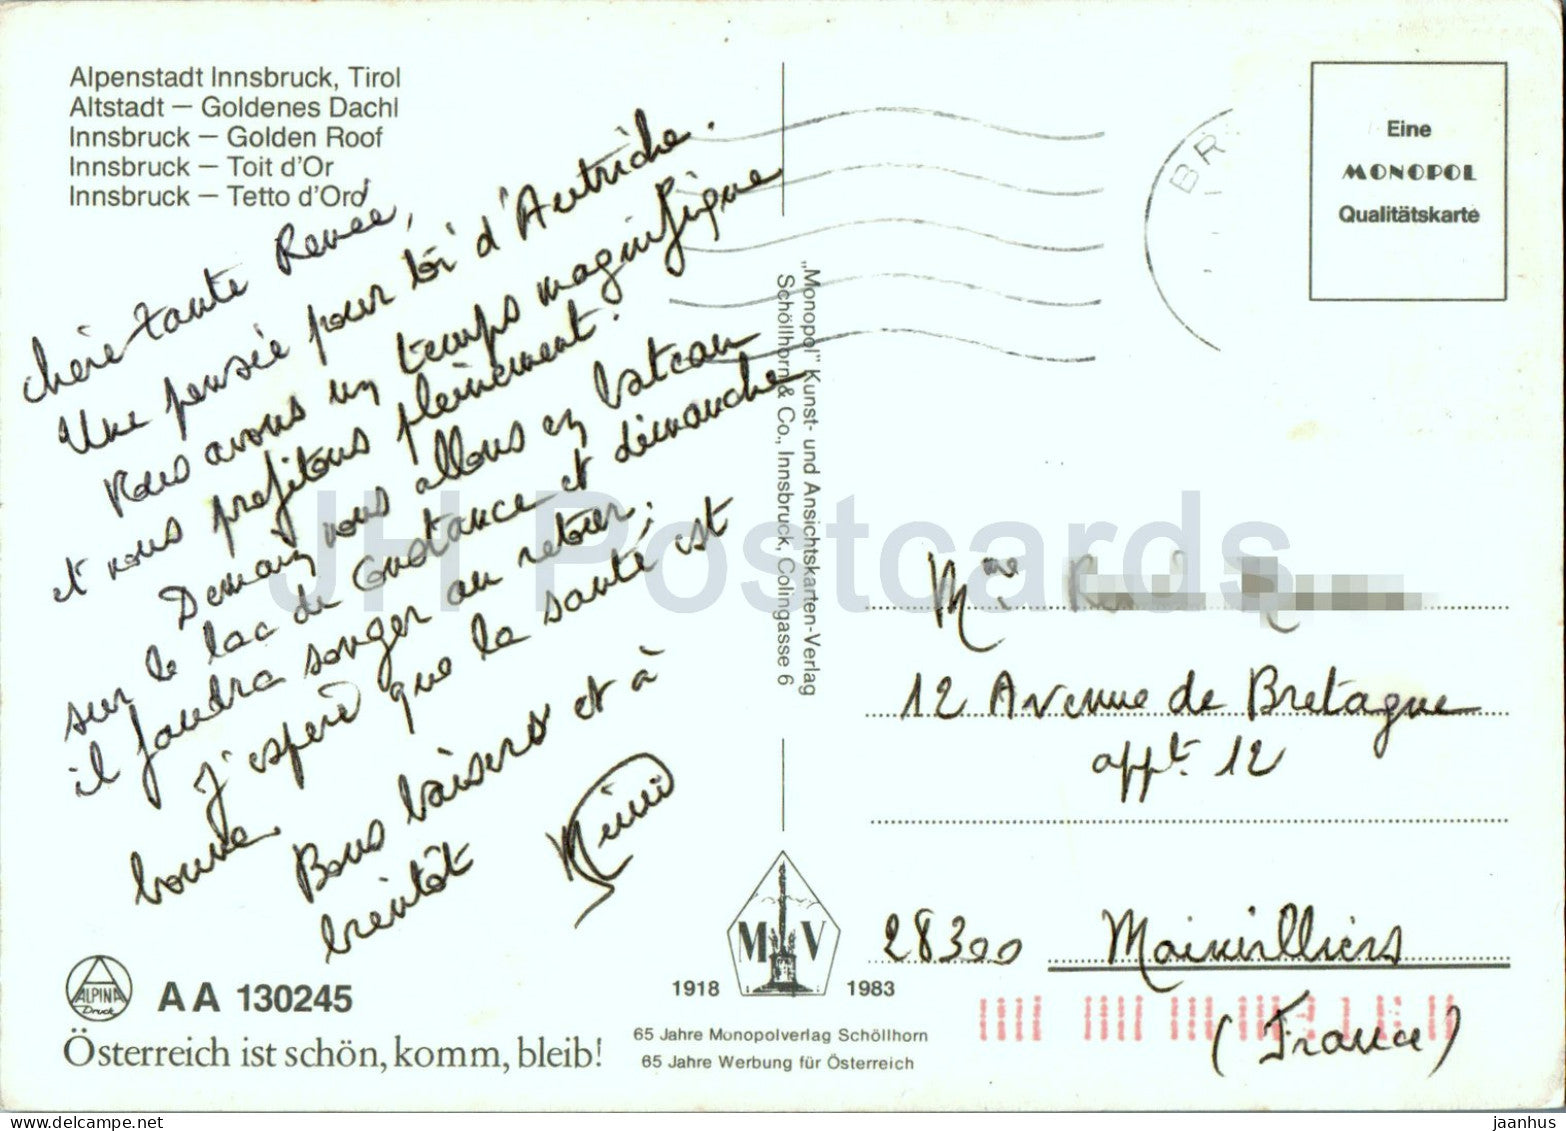 Alpenstadt Innsbruck, Tirol
Altstadt — Goldenes Dachl
Innsbruck — Golden Roof
Innsbruck — Toit d'Or
Innsbruck — Tetto d'Oro
Chère tante Renée,
Une pensée pour toi d'Autriche.
Nous avons un temps magnifique
et nous profitons pleinement.
Demain nous allons en bateau
sur le lac de Constance et dimanche
il faudra songer au retour.
J'espère que la santé est
bonne.
Bons baisers et à
bientôt Mimi
ALPINA
Druck
AA 130245
Österreich ist schön, komm, bleib!
„Monopol" Kunst- und Ansichtskarten-Verlag
Schöllhorn & Co., Innsbruck, Colingasse 6
M V
1918 1983
65 Jahre Monopolverlag Schöllhorn
65 Jahre Werbung für Österreich
BR
Eine
MONOPOL
Qualitätskarte
Mme
12 Avenue de Bretagne
appt. 12
28300 Mainvilliers
(France)
JH Postcards
jaanhus